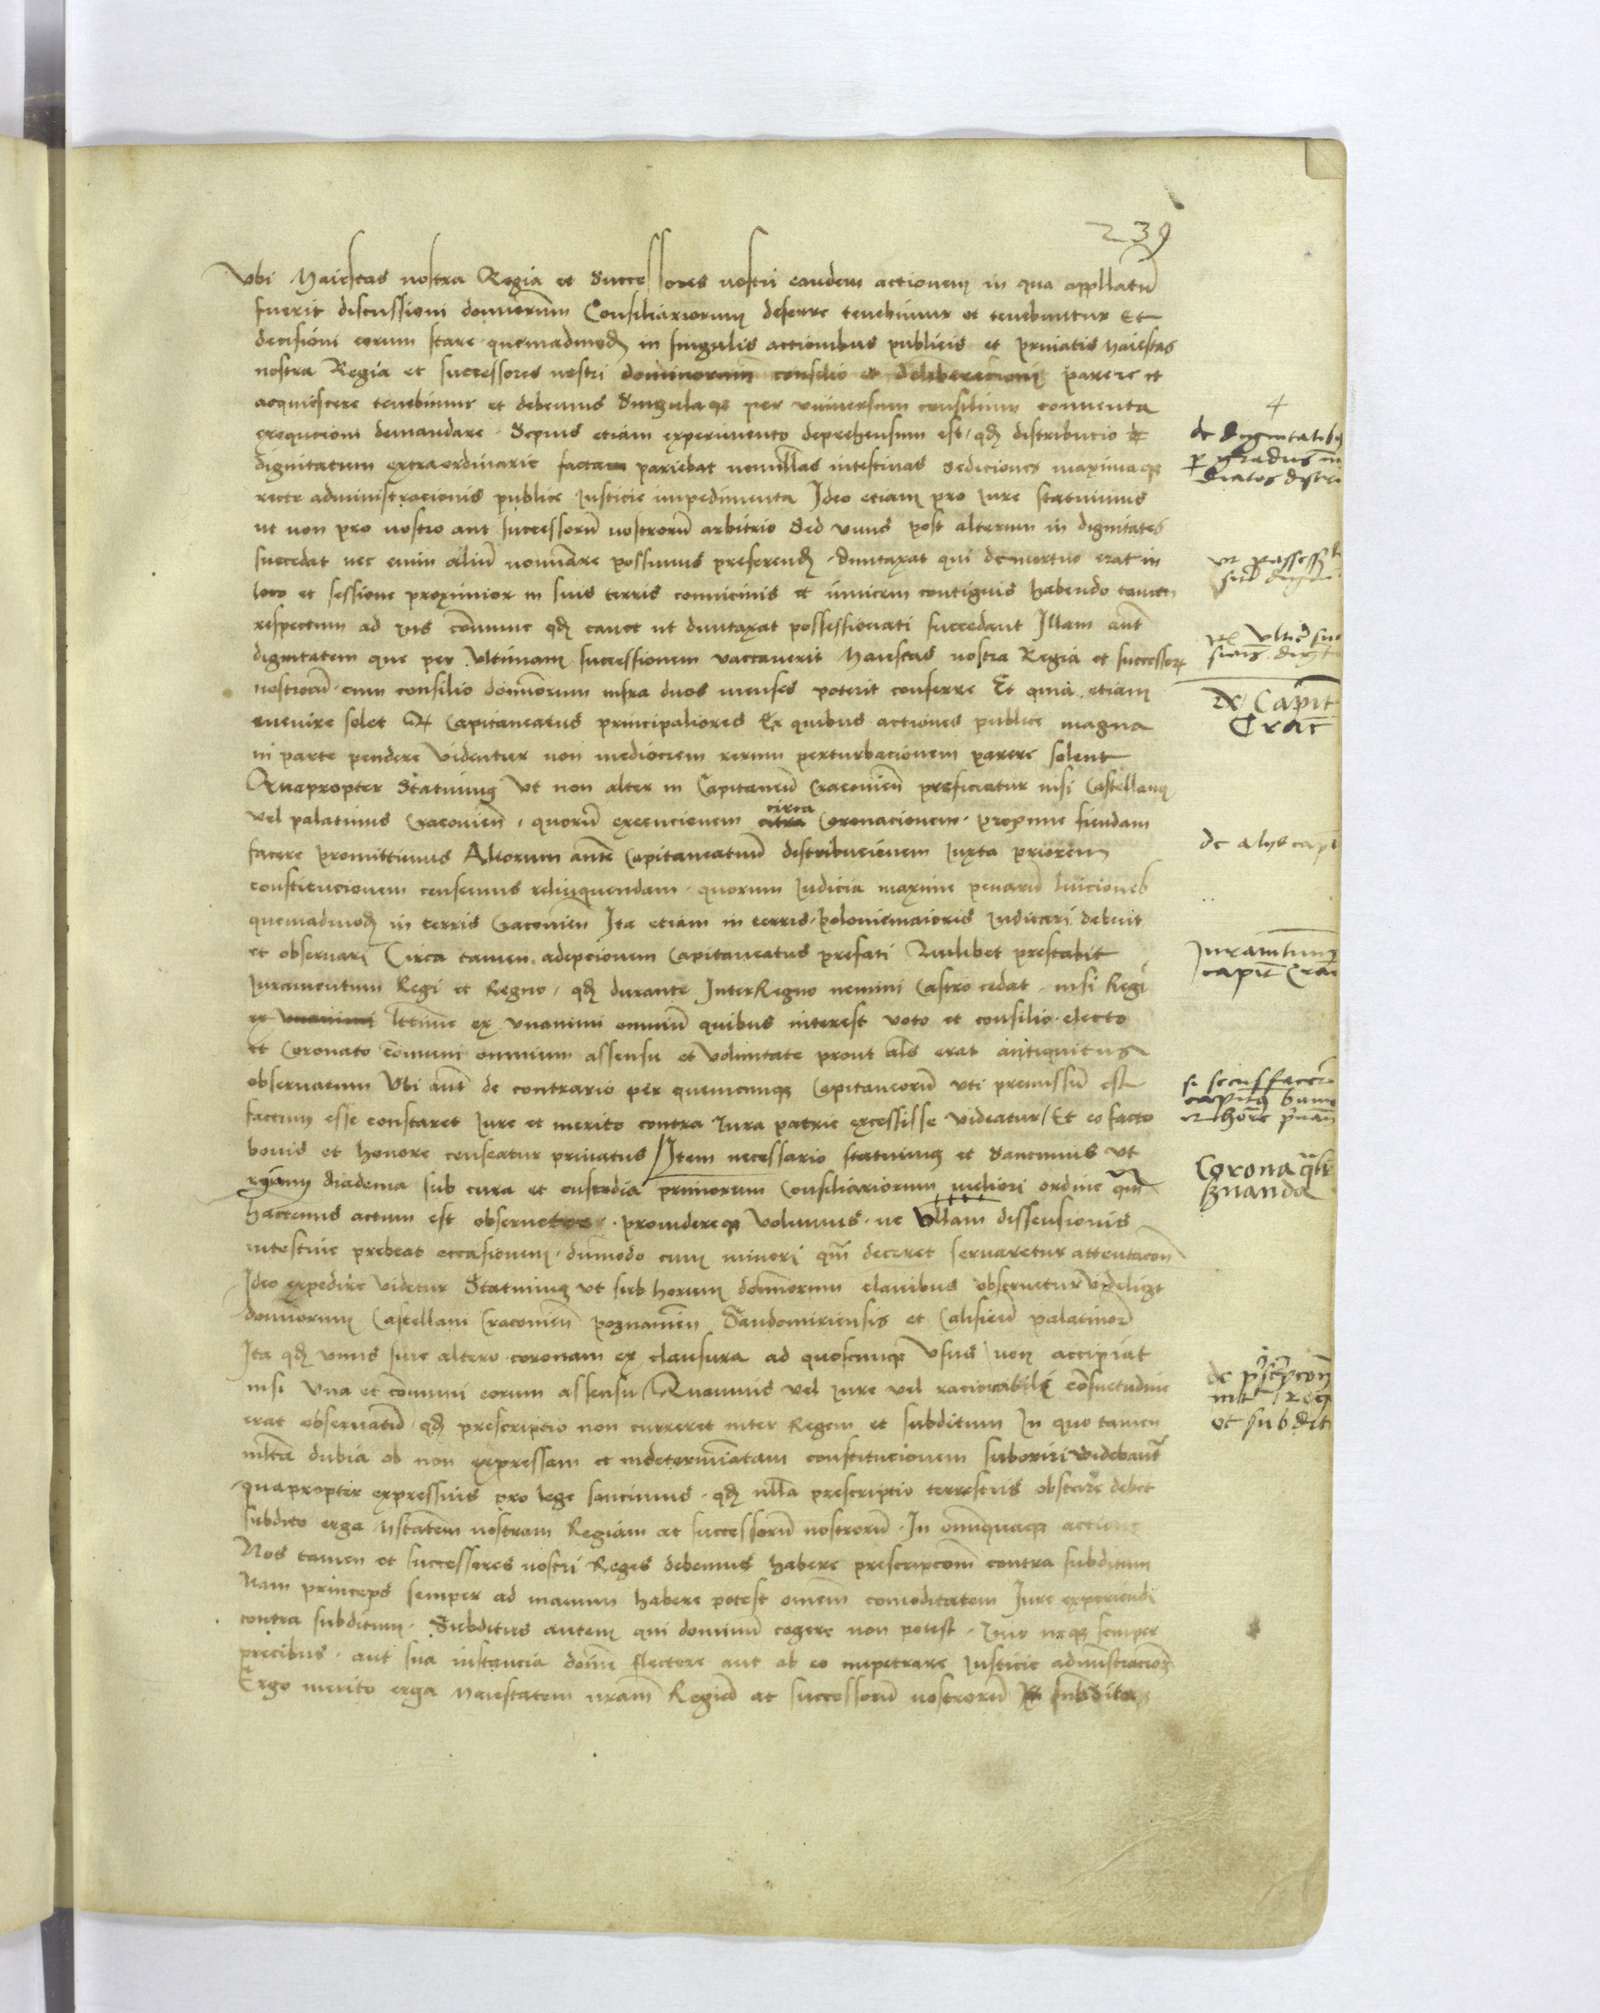 239
Ubi Maiestas nostra Regia et Successores nostri eandem actionem in qua appllatū
fuerit discussioni domorum Consiliariorum deferre tenebimur et tenebuntur Et
decisioni eorum stare quemadmodū in singulis actionibus publicis et priuatis Maiestas
nostra Regia et successores nostri dominorum consilio et deliberacioni parere et
acquiescere tenebimur et debemus Singulaqȝ per vniuersum consilium conuenta
exequcioni demandare Sepius etiam experimento deprehensum est qd distributio
dignitatum extraordinarie factam pariebat nonnullas intestinas sediciones maximaqȝ
recte administracionis publice Iusticie impedimenta Ideo etiam pro iure statuimus
ut non pro nostro aut successorū nostrorū arbitrio Sed vnus post alterum in dignitates
succedat nec enim aliū nominare possumus preferendū duntaxat qui demortuo erat in
loco et sessione proximior in suis terris conuicinis et inuicem contiguis habendo tamen
respectum ad ius cōmune qd cauet ut duntaxat possessionati succedant Illam aut
dignitatem que per Ultimam successionem vaccauerit Maiestas nostra Regia et successorum
nostrorū cum consilio domorum infra duos menses poterit conferre Et quia etiam
euenire solet Qd Capitaneatus principaliores Ex quibus actiones publice magna
in parte pendere Videntur non mediocrem rerum perturbacionem parere solent
Quapropter Statuimus Ut non alter in Capitaneū Cracouien preficiatur nisi Castellanus
vel palatinus Cracouien, quorū execucionem circa Coronacionem proxime fiendam
facere promittimus Aliorum autem Capitaneatuū distribucionem Iuxta priorem
constitucionem censemus relinquendam quorum Iudicia maxime penarū luiciones
quemadmodū in terris Cracouien Ita etiam in terris poloniemaioris Iudicari debent
et obseruari Circa tamen adepcionem Capitaneatus prefati Quilibet prestabit
Iuramentum Regi et Regno, qd durante InterRegno nemini Castro cedat nisi Regi
ltime ex vnanimi omniū quibus interest voto et consilio electo
et Coronato cōmuni omnium assensu et voluntate prout als erat antiquitus
obseruatum Vbi aut de contrario per quemcunqȝ Capitaneorū vti premissū est
factum esse constaret Iure et merito contra Iura patrie excessisse videatur Et eo facto
bonis et honore censeatur priuatus Item necessario statuimus et Sancimus Ut
regium diadema sub cura et custodia primorum Consiliariorum meliori ordine qm
hactenus actum est obseruetur prouidereqȝ volumus ne Ullam dissensionis
intestine prebeat occasionem dūmodo cum minori qm deceret seruaretur attentacon
Ideo expedire videtur Statuimus ut sub horum domorum clauibus obseruetur Videlicet
domorum Castellani Cracouien poznanien Sandomiriensis et Calisien palatinorū
Ita qd vnus sine altero coronam ex clausura ad quoscunqȝ Usus non accipiat
nisi Vna et cōmuni eorum assensu Quamuis vel Iure vel racionabili cōsuetudine
erat obseruatū qd prescriptio non curreret inter Regem et subditum In quo tamen
multa dubia ob non expressam et indeterminatam constitucionem suboriri videbantr
quapropter expressius pro lege sancimus qd nlla prescriptio terrestris obstare debet
subdito erga Mstatem nostram Regiam ac successorū nostrorū In omniquaqȝ actione
Nos tamen et successores nostri Reges debemus habere prescripcom contra subditum
Nam princeps semper ad manum habere potest omem comoditatem Iure experiendi
contra subditum Subditus autem qui dominū cogere non potest Imo neqȝ semper
precibus aut sua instancia dom flectere aut ab eo impetrare Iusticie administracion
Ergo merito erga Maiestatem nram Regiā ac successorū nostrorū subditus
de dignitatibus
p gradus in
Ex Capit
Crac
de alys capi
Iuramtum
capit Crac
si secus facer
capitaneus bonis
et hore priuan
Corona qlr
seruanda
de prescripcon
int Reg
et subdit